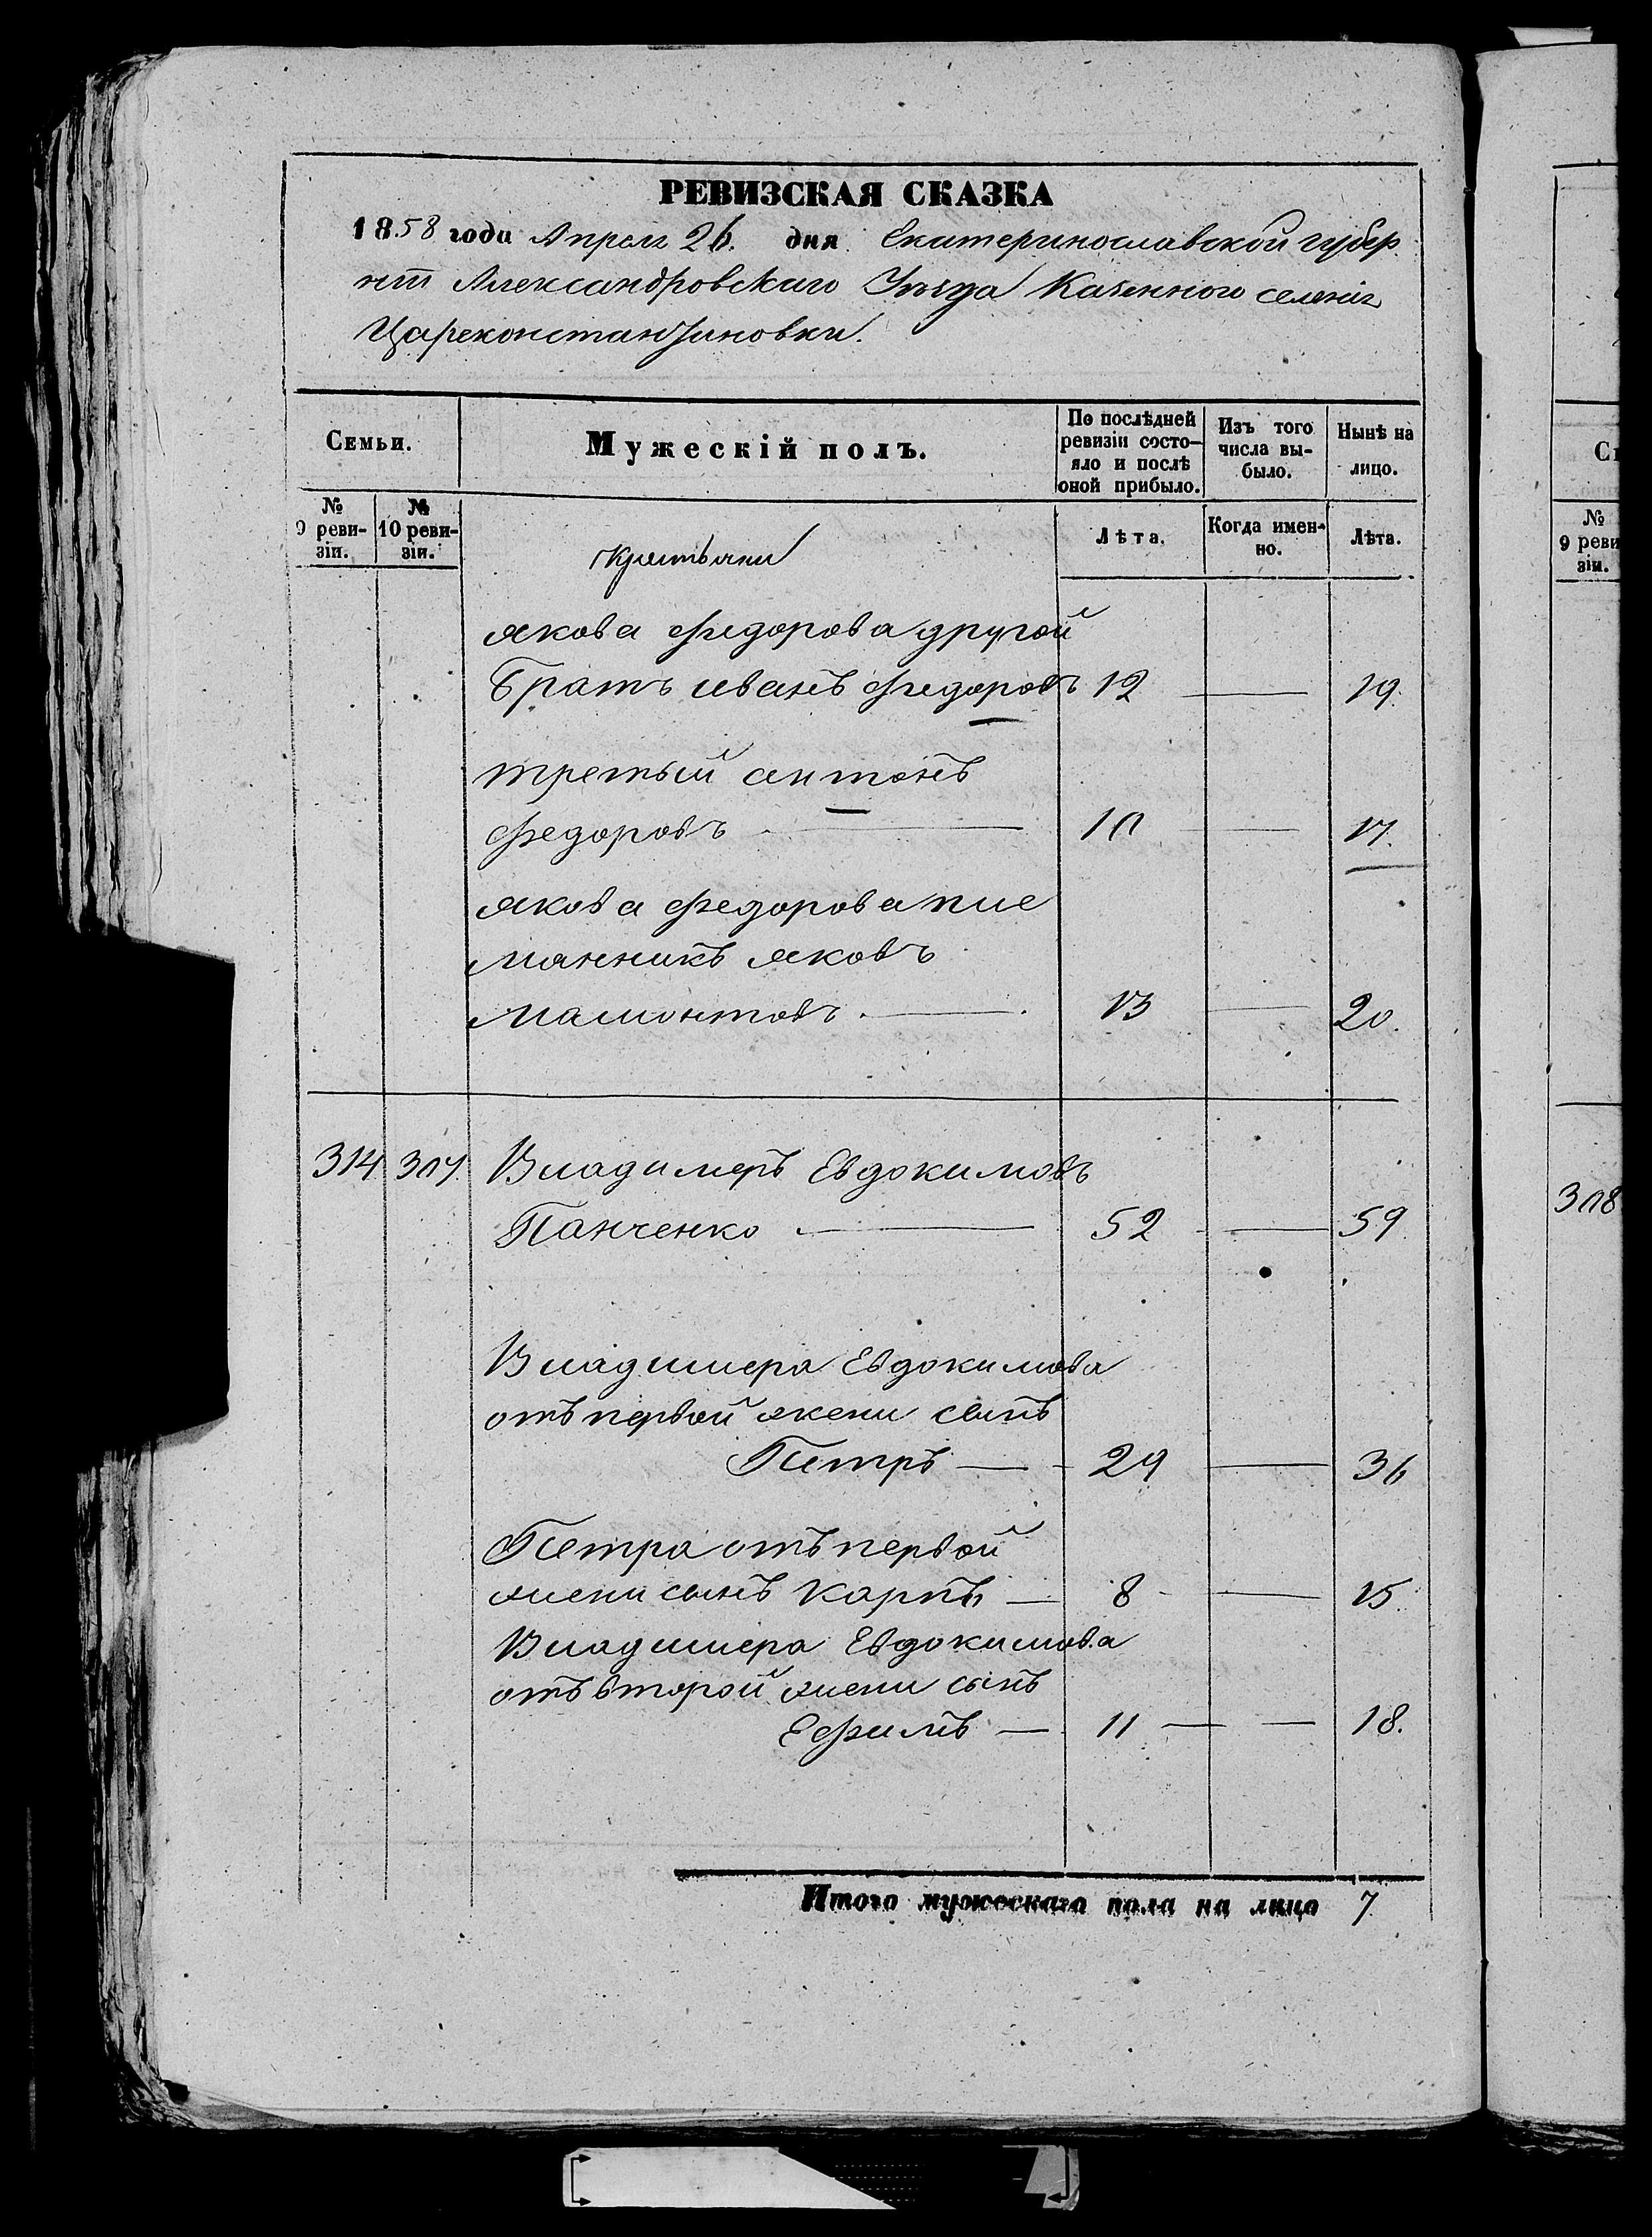 РЕВИЗСКАЯ СКАЗКА
1858 года Апреля 26. дня Екатеринославской губер
ніи Александровскаго Уѣзда Казеннаго селенія
Цареконстантиновки.
Семьи.
Мужескій полъ.
По послѣдней ревизіи состо-
яло и послѣ оной прибыло.
Изъ того числа вы-
было.
Нынѣ на лицо.
№ 9 реви-
зіи.
№ 10 реви-
зіи.
Крестьяни
Лѣта.
Когда имен-
но.
Лѣта.
якова федорова другой
братъ иванъ федоровъ 12 — 19.
третьий антонъ
федоровъ — 10 — 17.
якова федорова пле
манникъ яковъ
мамонтовъ — 13 — 20.
314 317. Владимеръ Евдокимовъ
Панченко — 52 — 59
Владимера Евдокимова
отъ первой жени сынъ
Петръ — 29 — 36
Петра отъ первой
жени сынъ карпъ — 8 — 15.
Владимера Евдокимова
отъ второй жени сынъ
Ефимъ — 11 — 18.
Итого мужескаго пола на лицо 7
№
9 реви
зіи.
318